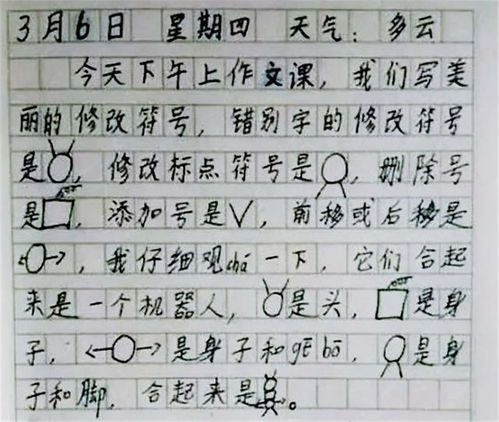 3月6日 星期四 天气：多云
今天下午上作文课，我们写美
丽的修改符号，错别字的修改符号
是，修改标点符号是，删除号
是，添加号是∨，前移或后移是
，我仔细观chā一下，它们合起
来是一个机器人，是头，是身
子，是身子和gē bō，是身
子和脚，合起来是。